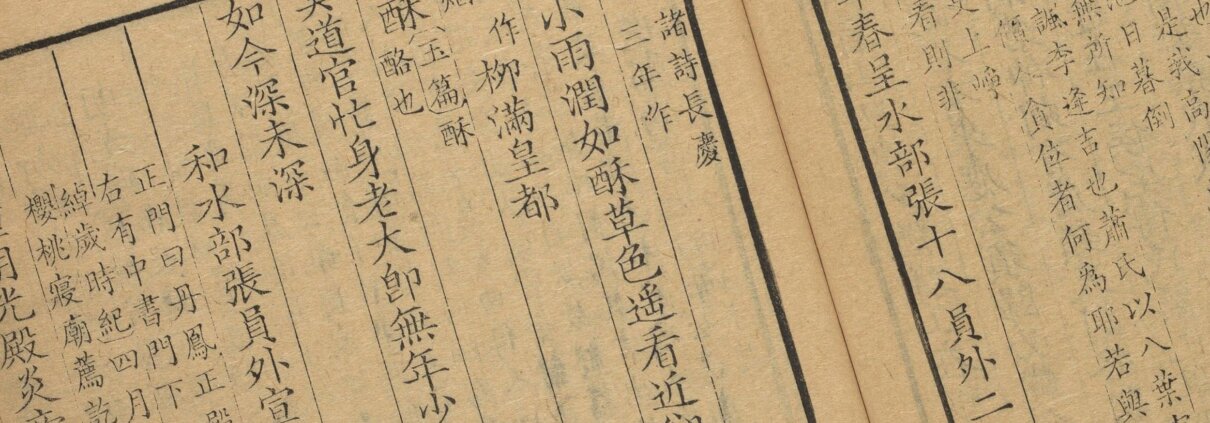 也
是我高陽
日暮倒
無所知
諷李逢吉也蕭氏以八葉
貪位者何為耶若與
上喚
看則非
春呈水部張十八員外二
諸詩長慶
三年作
小雨潤如酥草色遙看近卻
作
柳滿皇都
玉篇酥
酥酪也
莫道官忙身老大即無年少
如今深未深
和水部張員外宣
正門曰丹鳳正殿
右有中書門下
綽歲時紀四月
櫻桃寢廟薦訖
明光殿炎